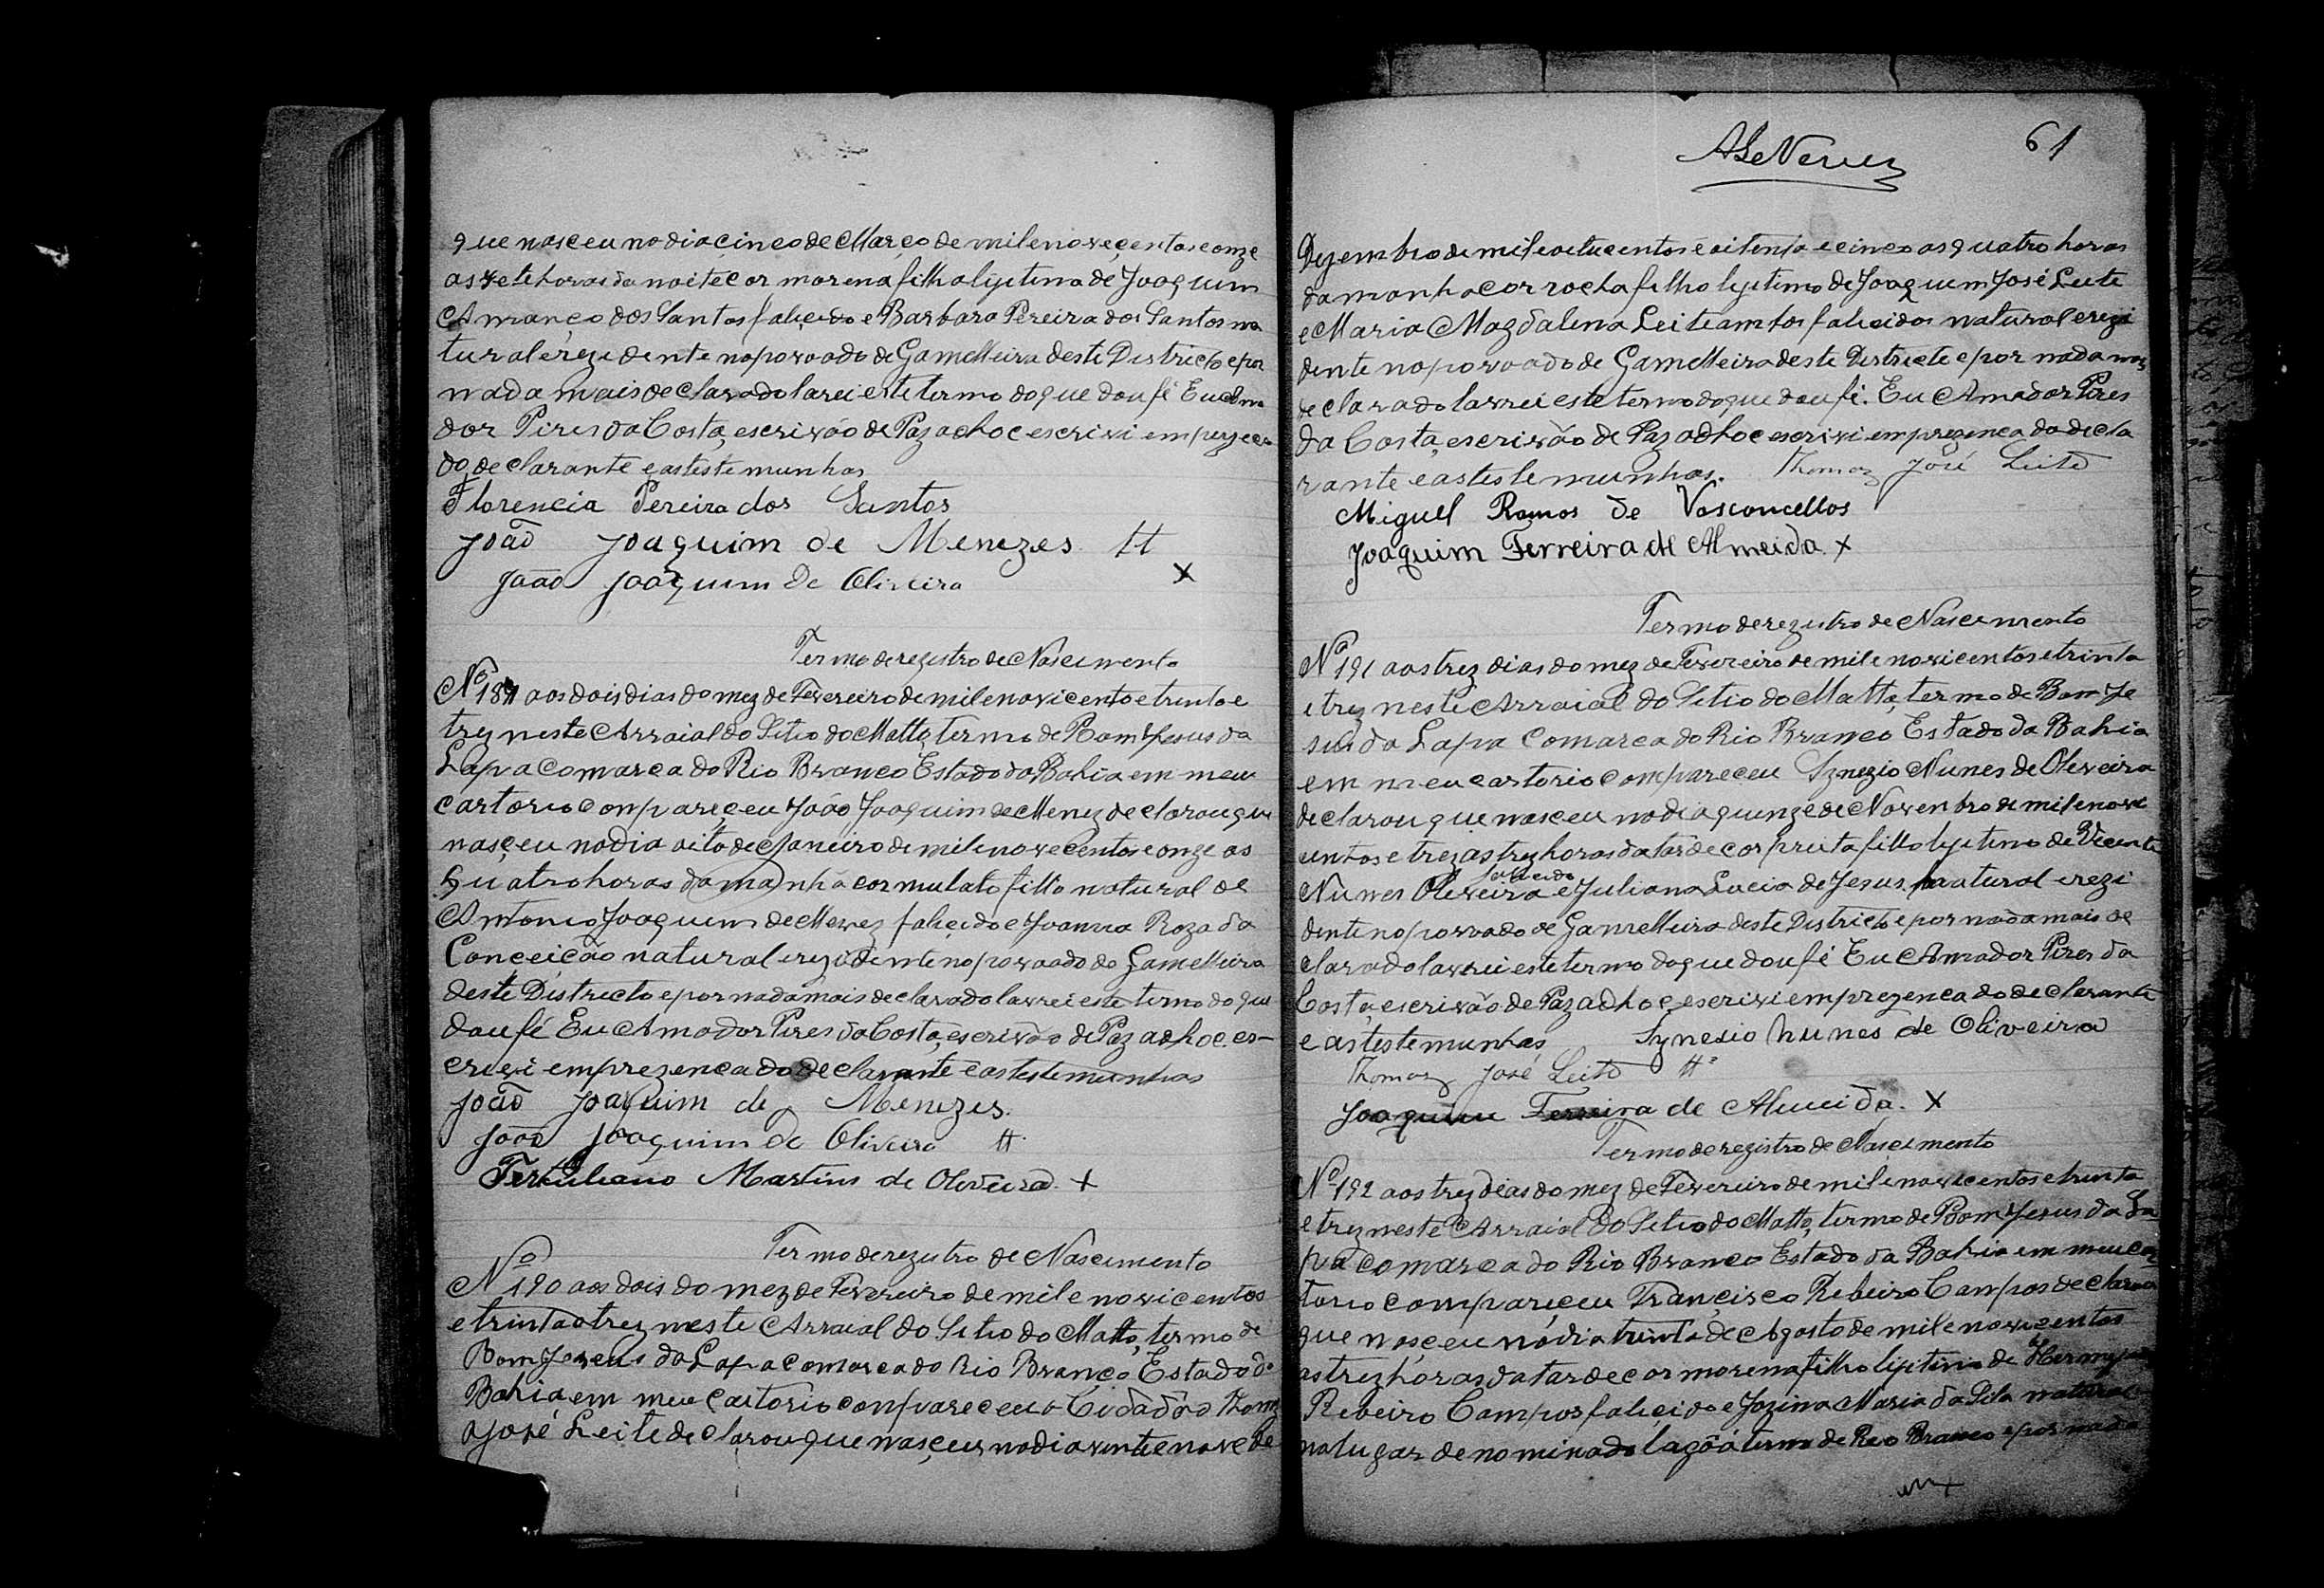 que nasceu no dia cinco de Março de mil e novecentos e onze
as sete horas da noite cor morena filha lijitima de Joaquim
Amanço dos Santos falicido e Barbara Pereira dos Santos na
tural e rezidente no povoado de Gamelleira deste Districto e por
nada mais declarado larei este termo do que dou fé Eu Ama
dor Pires da Costa, escrivão de Paz adhoc escrivi em prezeca
do declarante e as testemunhas
Florencia Pereira dos Santos
João Joaquim de Menezes tt
João Joaquim de Oliveira X
Termo de registro de Nascimento
Nº 189 aos dois dias do mez de Fevereiro de mil e novicento e trinta e
trez neste Arraial do Sitio do Matto, termo de Bom Jesus da
Lapa comarca do Rio Branco Estado da Bahia em meu
cartorio compareçeu João Joaquim de Menez declarou que
nasçeu no dia oito de Janeiro de mil e novecentos e onze as
quatro horas da manhã cor mulato filho natural de
Antonio Joaquim de Menez faliçido e Joanna Roza da
Conceição natural e rezidente no povoado de Gamelleira
deste Districto e por nada mais declarado lavrei este termo do que
dou fé Eu Amador Pires da Costa, escrivão de Paz adhoc es-
crivi em prezenca do declarante e as testemunhas
João Joaquim de Menezes.
João Joaquim de Oliveira tt.
Tertuliano Martins de Oliveira. X
Termo de rezistro de Nascimento
Nº 190 aos dois do mez de Fevereiro de mil e novicentos
e trinta e trez neste Arraial do Sitio do Matto, termo de
Bom Jezeus da Lapa comarca do Rio Branco Estado da
Bahia em meu cartorio compareceu o Cidadão Thomz
José Leite declarou que nasçeu no dia vinte e nove de
ALeNeves 61
Dezembro de mil e oitucentos e oitenta e cinco as quatro horas
da manha cor rocha filho lijitimo de Joaquem José Leite
e Maria Magdalena Leite ambos falicidos natural e rezi
dente no povoado de Gamelleira deste Districte e por nada mas
declarado lavrei este termo do que dou fé. Eu Amador Pires
da Costa, escrivão de Paz adhoc escrivi em prezenca do decla
rante e as testemunhas. Thomaz José Leite
Miguel Ramos de Vasconcellos
Joaquim Ferreira de Almeida. X
Termo de rezistro de Nascimento
Nº 191 aos trez dias do mez de Fevereiro de mil e novicentos e trinta
e trez neste Arraial do Sitio do Matto, termo de Bom Je
sus da Lapa Comarca do Rio Branco Estado da Bahia
em meu cartorio compareceu Sznezio Nunes de Oliveira
declarou que nasceu no dia quinze de Novenbro de mil e nove
centos e trez as trez horas da tarde cor preita filho lijitimo de Vicente
falicido
Nunes Oliveira e Juliana Lucia de Jesus. natural e rezi
dente no povoado de Gamelleira deste Districto e por nada mais de
clarado lavrei este termo do que dou fé Eu Amador Pires da
Costa, escrivão de Paz adhoc escrivi em prezenca do declarante
e as testemunhas Synesio Nunes de Oliveira
Thomaz José Leite tt.
Joaquim Ferreira de Almeida. X
Termo de registro de Nascimento
Nº 192 aos trez dias do mez de Fevereiro de mil e novicentos e trinta
e trez neste Arraial do Sitio do Matto, termo de Bom Jesus da La
pa comarca do Rio Branco Estado da Bahia em meu car
torio compareçeu Françisco Ribeiro Campos declarou
que nasçeu no dia trinta de Agosto de mil e novicentos
as trez horas da tarde cor morena filho lijitimo de
Ribeiro Campos falicido e Jozina Maria da Sila natural
no lugar denominado lagôa termo de Rio Branco e por nada